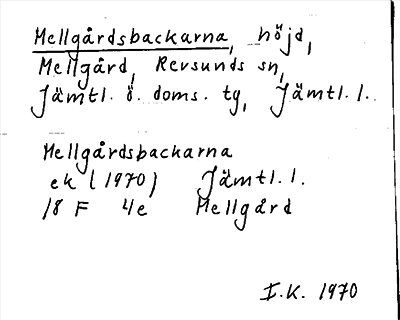 Mellgårdsbackarna, höjd,
Mellgård, Revsunds sn,
Jämtl. ö. doms. tg, Jämtl. l.
Mellgårdsbackarna
ek (1970) Jämtl. l.
18 F 4e Mellgård
I.K. 1970